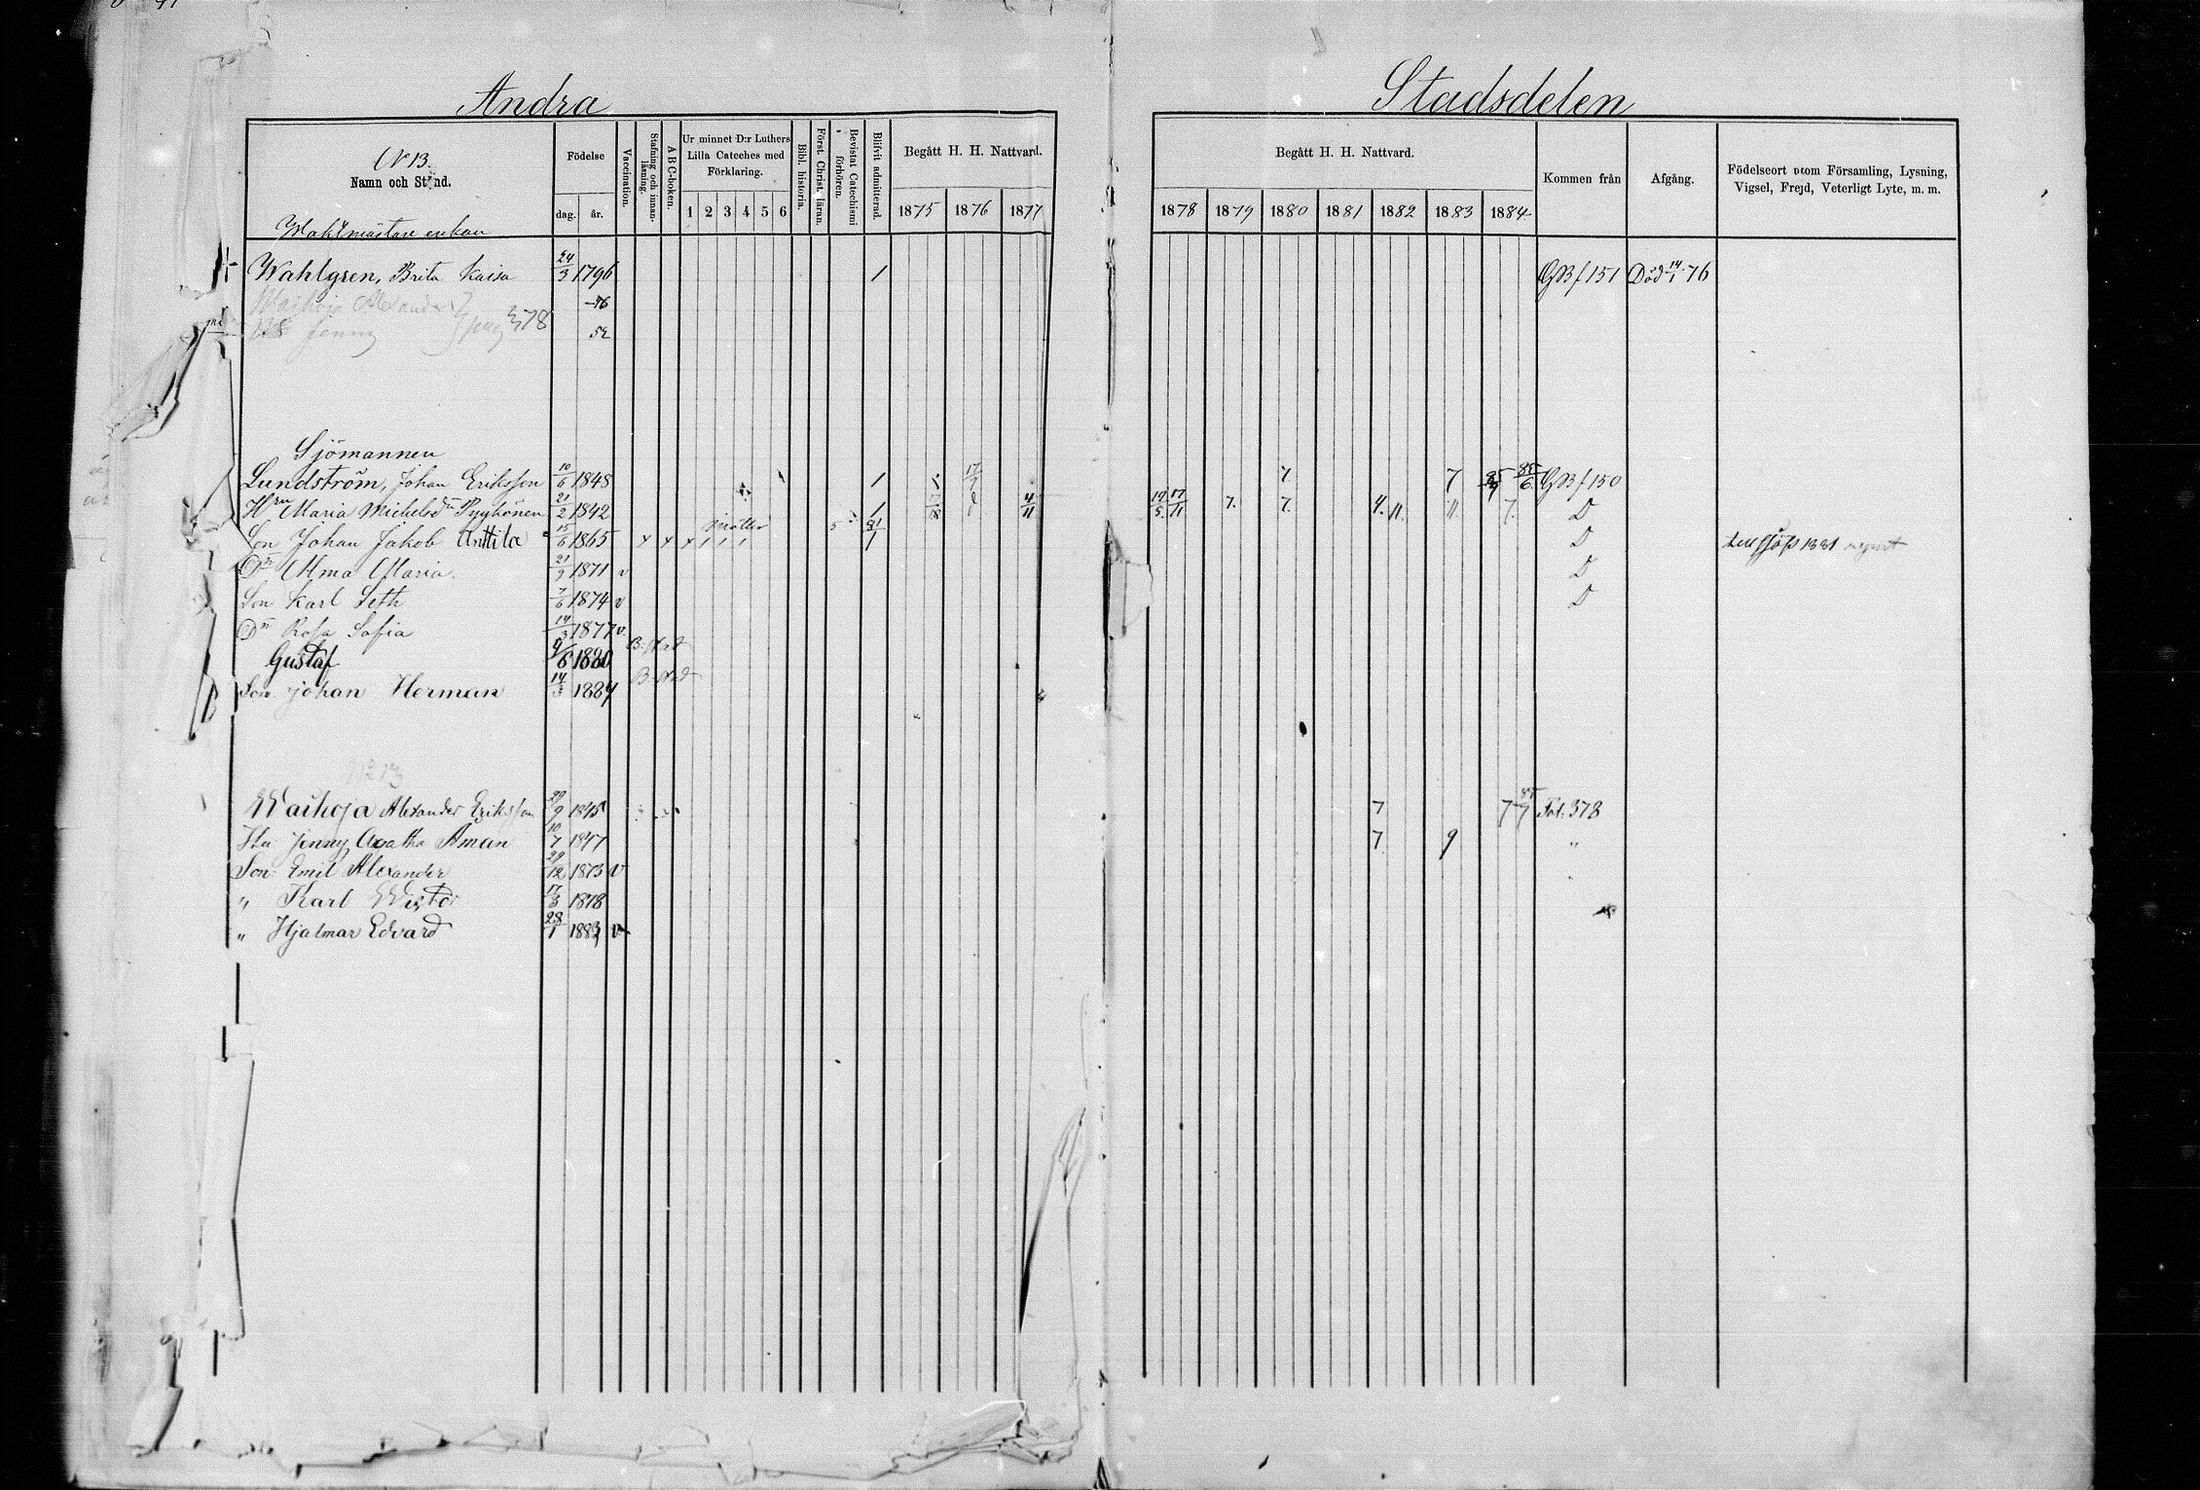 Andra Stadsdelen
N 13.
Namn och Stånd.
Födelse
dag. år.
Vaccination.
Stafning och innanläsning.
A B C-boken.
Ur minnet D:r Luthers Lilla Cateches med Förklaring.
1 2 3 4 5 6
Bibl. historia.
Först. Christ. läran.
Bevistat Catechismi förhören.
Blifvit admitterad.
Begått H. H. Nattvard.
1875 1876 1877
Begått H. H. Nattvard.
1878 1879 1880 1881 1882 1883 1884
Kommen från
Afgång.
Födelseort utom Församling, Lysning, Vigsel, Frejd, Veterligt Lyte, m. m.
enkan
Wahlgren, Brita Kaisa 24/3 1796 1 GB f 151 Död 14/1 76
Alexander
Jenny 378 52
Sjömannen
Lundström, Johan Eriksson 10/6 1848 1 17 7 7 85/6 GB f 150
Hru Maria Michelsdr Pyyhönen 21/2 1842 1 4/11 19/5 17/11 7. 7. 4. 11. 11. 7. D
Son Johan Jakob Anttila 15/6 1865 x x x 1 1 1 5 81/1 D till sjös 1881
Dr Alma Maria. 21/9 1871 v D
Son Karl Seth 7/6 1874 v D
Dr Rosa Sofia 14/3 1877 v.
Gustaf 9/6 1880
Son Johan Herman 14/3 1884
No 13
Waihoja Alexander Eriksson 1845 7 7 Fol. 378
Hu Jenny Agatha Åman 10/7 1847 7 9 "
Son Emil Alexander 29/12 1873 v
" Karl 1878
" Hjalmar Edvard 28/1 1883 v